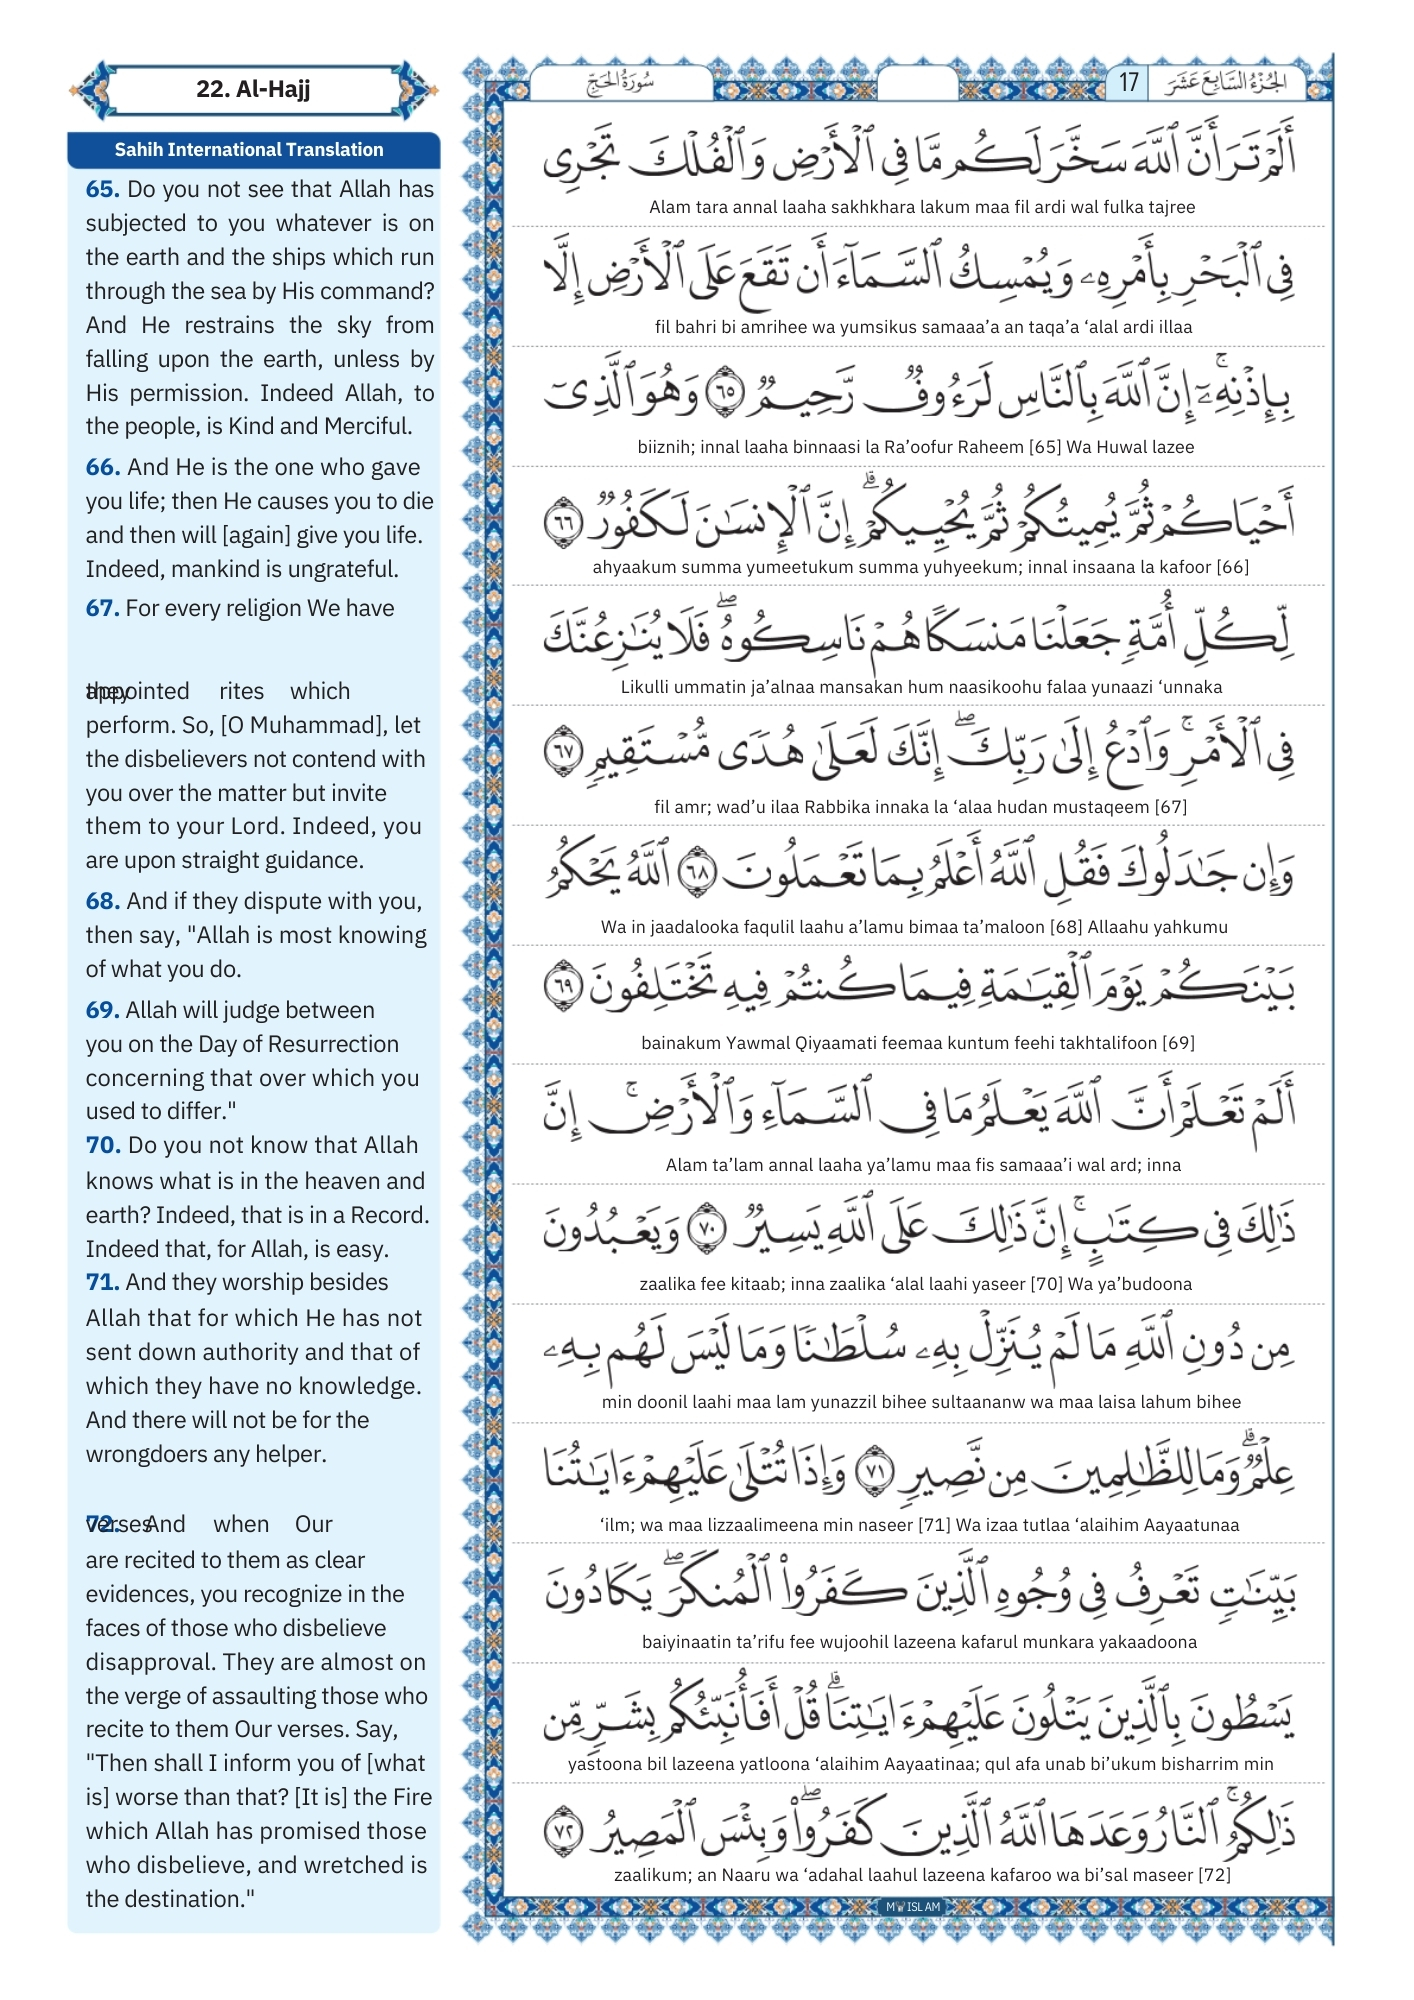 22. Al-Hajj
Sahih International Translation
65. Do you not see that Allah has
subjected to you whatever is on
the earth and the ships which run
through the sea by His command?
And He restrains the sky from
falling upon the earth, unless by
His permission. Indeed Allah, to
the people, is Kind and Merciful.
66. And He is the one who gave
you life; then He causes you to die
and then will [again] give you life.
Indeed, mankind is ungrateful.
67. For every religion We have
appointed rites which they
perform. So, [O Muhammad], let
the disbelievers not contend with
you over the matter but invite
them to your Lord. Indeed, you
are upon straight guidance.
68. And if they dispute with you,
then say, "Allah is most knowing
of what you do.
69. Allah will judge between
you on the Day of Resurrection
concerning that over which you
used to differ."
70. Do you not know that Allah
knows what is in the heaven and
earth? Indeed, that is in a Record.
Indeed that, for Allah, is easy.
71. And they worship besides
Allah that for which He has not
sent down authority and that of
which they have no knowledge.
And there will not be for the
wrongdoers any helper.
72. And when Our verses
are recited to them as clear
evidences, you recognize in the
faces of those who disbelieve
disapproval. They are almost on
the verge of assaulting those who
recite to them Our verses. Say,
"Then shall I inform you of [what
is] worse than that? [It is] the Fire
which Allah has promised those
who disbelieve, and wretched is
the destination."
الجُزْءُ السَّابِعَ عَشَرَ 17 سُورَةُ الحَجِّ
أَلَمْ تَرَ أَنَّ ٱللَّهَ سَخَّرَ لَكُم مَّا فِى ٱلْأَرْضِ وَٱلْفُلْكَ تَجْرِى
Alam tara annal laaha sakhkhara lakum maa fil ardi wal fulka tajree
فِى ٱلْبَحْرِ بِأَمْرِهِۦ وَيُمْسِكُ ٱلسَّمَآءَ أَن تَقَعَ عَلَى ٱلْأَرْضِ إِلَّا
fil bahri bi amrihee wa yumsikus samaaa’a an taqa’a ‘alal ardi illaa
بِإِذْنِهِۦٓ ۚ إِنَّ ٱللَّهَ بِٱلنَّاسِ لَرَءُوفٌ رَّحِيمٌ ٦٥ وَهُوَ ٱلَّذِىٓ
biiznih; innal laaha binnaasi la Ra’oofur Raheem [65] Wa Huwal lazee
أَحْيَاكُمْ ثُمَّ يُمِيتُكُمْ ثُمَّ يُحْيِيكُمْ ۗ إِنَّ ٱلْإِنسَٰنَ لَكَفُورٌ ٦٦
ahyaakum summa yumeetukum summa yuhyeekum; innal insaana la kafoor [66]
لِّكُلِّ أُمَّةٍ جَعَلْنَا مَنسَكًا هُمْ نَاسِكُوهُ ۖ فَلَا يُنَٰزِعُنَّكَ
Likulli ummatin ja’alnaa mansakan hum naasikoohu falaa yunaazi ‘unnaka
فِى ٱلْأَمْرِ ۚ وَٱدْعُ إِلَىٰ رَبِّكَ ۖ إِنَّكَ لَعَلَىٰ هُدًى مُّسْتَقِيمٍ ٦٧
fil amr; wad’u ilaa Rabbika innaka la ‘alaa hudan mustaqeem [67]
وَإِن جَٰدَلُوكَ فَقُلِ ٱللَّهُ أَعْلَمُ بِمَا تَعْمَلُونَ ٦٨ ٱللَّهُ يَحْكُمُ
Wa in jaadalooka faqulil laahu a’lamu bimaa ta’maloon [68] Allaahu yahkumu
بَيْنَكُمْ يَوْمَ ٱلْقِيَٰمَةِ فِيمَا كُنتُمْ فِيهِ تَخْتَلِفُونَ ٦٩
bainakum Yawmal Qiyaamati feemaa kuntum feehi takhtalifoon [69]
أَلَمْ تَعْلَمْ أَنَّ ٱللَّهَ يَعْلَمُ مَا فِى ٱلسَّمَآءِ وَٱلْأَرْضِ ۚ إِنَّ
Alam ta’lam annal laaha ya’lamu maa fis samaaa’i wal ard; inna
ذَٰلِكَ فِى كِتَٰبٍ ۚ إِنَّ ذَٰلِكَ عَلَى ٱللَّهِ يَسِيرٌ ٧٠ وَيَعْبُدُونَ
zaalika fee kitaab; inna zaalika ‘alal laahi yaseer [70] Wa ya’budoona
مِن دُونِ ٱللَّهِ مَا لَمْ يُنَزِّلْ بِهِۦ سُلْطَٰنًا وَمَا لَيْسَ لَهُم بِهِۦ
min doonil laahi maa lam yunazzil bihee sultaananw wa maa laisa lahum bihee
عِلْمٌ ۗ وَمَا لِلظَّٰلِمِينَ مِن نَّصِيرٍ ٧١ وَإِذَا تُتْلَىٰ عَلَيْهِمْ ءَايَٰتُنَا
‘ilm; wa maa lizzaalimeena min naseer [71] Wa izaa tutlaa ‘alaihim Aayaatunaa
بَيِّنَٰتٍ تَعْرِفُ فِى وُجُوهِ ٱلَّذِينَ كَفَرُوا۟ ٱلْمُنكَرَ ۖ يَكَادُونَ
baiyinaatin ta’rifu fee wujoohil lazeena kafarul munkara yakaadoona
يَسْطُونَ بِٱلَّذِينَ يَتْلُونَ عَلَيْهِمْ ءَايَٰتِنَا ۗ قُلْ أَفَأُنَبِّئُكُم بِشَرٍّ مِّن
yastoona bil lazeena yatloona ‘alaihim Aayaatinaa; qul afa unab bi’ukum bisharrim min
ذَٰلِكُمُ ۚ ٱلنَّارُ وَعَدَهَا ٱللَّهُ ٱلَّذِينَ كَفَرُوا۟ ۖ وَبِئْسَ ٱلْمَصِيرُ ٧٢
zaalikum; an Naaru wa ‘adahal laahul lazeena kafaroo wa bi’sal maseer [72]
MY ISLAM